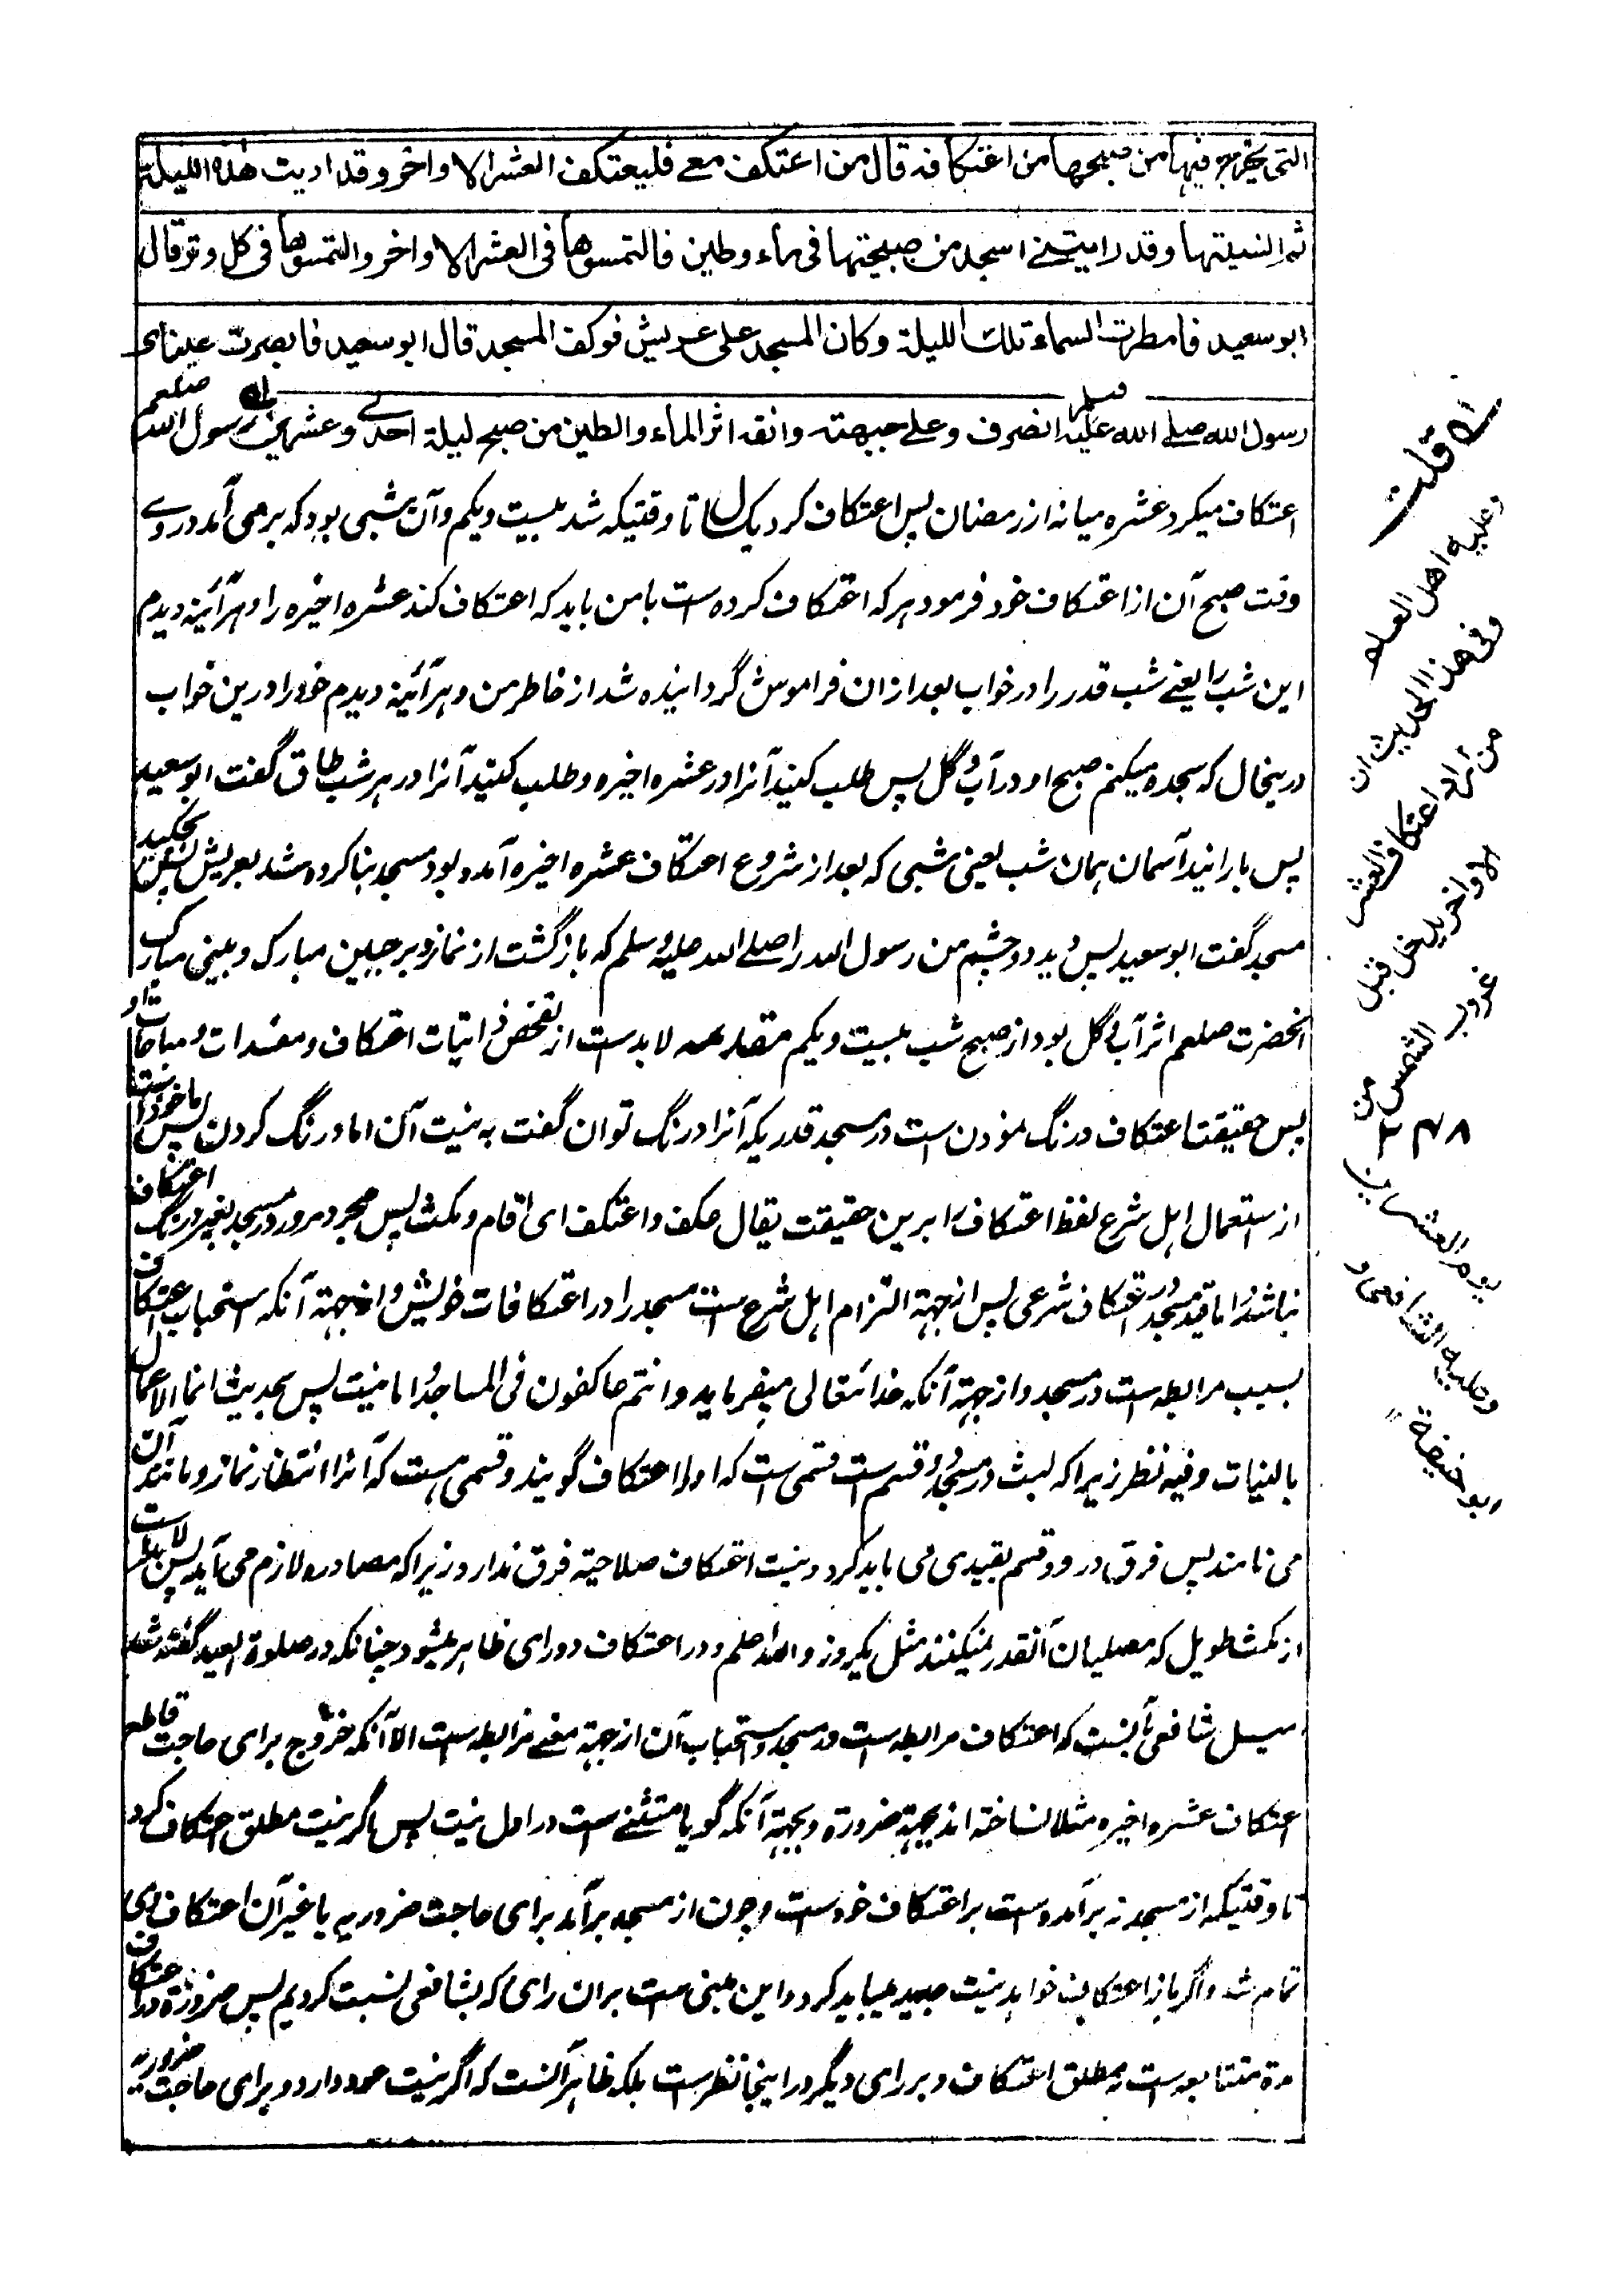 التی یخرج فیها من صبحها من اعتکافه قال من اعتکف معے فلیعتکف العشر الاواخر وقد اریت هذه اللیلة
ثم انسیتها وقد رایتنے اسجد من صبیحتها فی ماء وطین فالتمسوها فی العشر الاواخر والتمسوها فی کل وتر قال
ابو سعید فامطرت السماء تلك اللیلة وکان المسجد علی عریش فوکف المسجد قال ابو سعید فابصرت عینای
رسول الله صلے الله علیه وسلم انصرف وعلے جبهته وانفه اثر الماء والطین من صبح لیلة احدے وعشرین رسول الله صلعم
اعتکاف میکرد عشره میانه از رمضان پس اعتکاف کرد یک سال تا وقتیکه شد بیست ویکم وآن شبی بود که برمی آمد در وے
وقت صبح آن از اعتکاف خود فرمود هر که اعتکاف کرده است بامن باید که اعتکاف کند عشره اخیره را وهر آئینه دیدم
این شب را یعنے شب قدر را در خواب بعد ازان فراموش گردانیده شد از خاطر من وهر آئینه دیدم خود را درین خواب
درینحال که سجده میکنم صبح او در آب وگل پس طلب کنید آنرا در عشره اخیره وطلب کنید آنرا در هر شب طاق گفت ابو سعید
پس بارانید آسمان همان شب یعنی شبی که بعد از شروع اعتکاف عشره اخیره آمده بود ومسجد بنا کرده شد بعریش پس بچکید
مسجد گفت ابو سعید پس دید دو چشم من رسول الله را صلے الله علیه وسلم که بازگشت از نماز وبر جبین مبارک وبینی مبارک
آنحضرت صلعم اثر آب وگل بود از صبح شب بیست ویکم مقدمه لابدست از تفحص ذاتیات اعتکاف ومفسدات ومباحات او
پس حقیقت اعتکاف درنگ نمودن است در مسجد قدریکه آنرا درنگ توان گفت به نیت آن اما درنگ کردن پس ماخوذ است
از استعمال اهل شرع لفظ اعتکاف را برین حقیقت یقال عکف واعتکف ای اقام ومکث پس مجرد مرور در مسجد بغیر درنگ اعتکاف
نباشد واما قید مسجد در اعتکاف شرعی پس از جهة التزام اهل شرع است مسجد را در اعتکافات خویش واز جهة آنکه استحباب اعتکاف
بسبب مرابطه است در مسجد واز جهة آنکه خدا تعالی میفرماید وانتم عاکفون فی المساجد واما نیت پس بحدیث انما الاعمال
بالنیات وفیه نظر زیراکه لبث در مسجد دو قسم است قسمی است که اورا اعتکاف گویند وقسمی هست که آنرا انتظار نماز ومانند آن
می نامند پس فرق در دو قسم بقیدی می باید کرد ونیت اعتکاف صلاحیة فرق ندارد زیراکه مصادره لازم می آید پس لابد است
از مکث طویل که مصلیان آنقدر نمیکنند مثل یکروز والله اعلم ودر اعتکاف دو رای ظاهر میشود چنانکه در صلوة العید گفته شد
میل شافعی آنست که اعتکاف مرابطه است در مسجد واستحباب آن از جهة معنے مرابطه است الا آنکه خروج برای حاجت قاطع
اعتکاف عشره اخیره مثلا نساخته اند بجهة ضرورة وبجهة آنکه گویا مستثنے است در اول نیت پس اگر نیت مطلق اعتکاف کرد
تا وقتیکه از مسجد نه برآمده است بر اعتکاف خودست وچون از مسجد برآمد برای حاجت ضروریه یا غیر آن اعتکاف وی
تمام شد واگر باز اعتکاف خواهد نیت جدید میباید کرد واین مبنی است بران رای که بشافعی نسبت کردیم پس ضرورة در اعتکاف
مدة متتابعه است نه مطلق اعتکاف وبر رای دیگر در اینجا نظرست بلکه ظاهر آنست که اگر نیت عود دارد وبرای حاجت ضروریه
قلت
وعلیه اهل العلم
وفی هذا الحدیث ان
من اراد اعتکاف العشر
الاواخر یدخل قبل
غروب الشمس من
یوم العشرین
وعلیه الشافعی و
ابو حنیفة ١٢